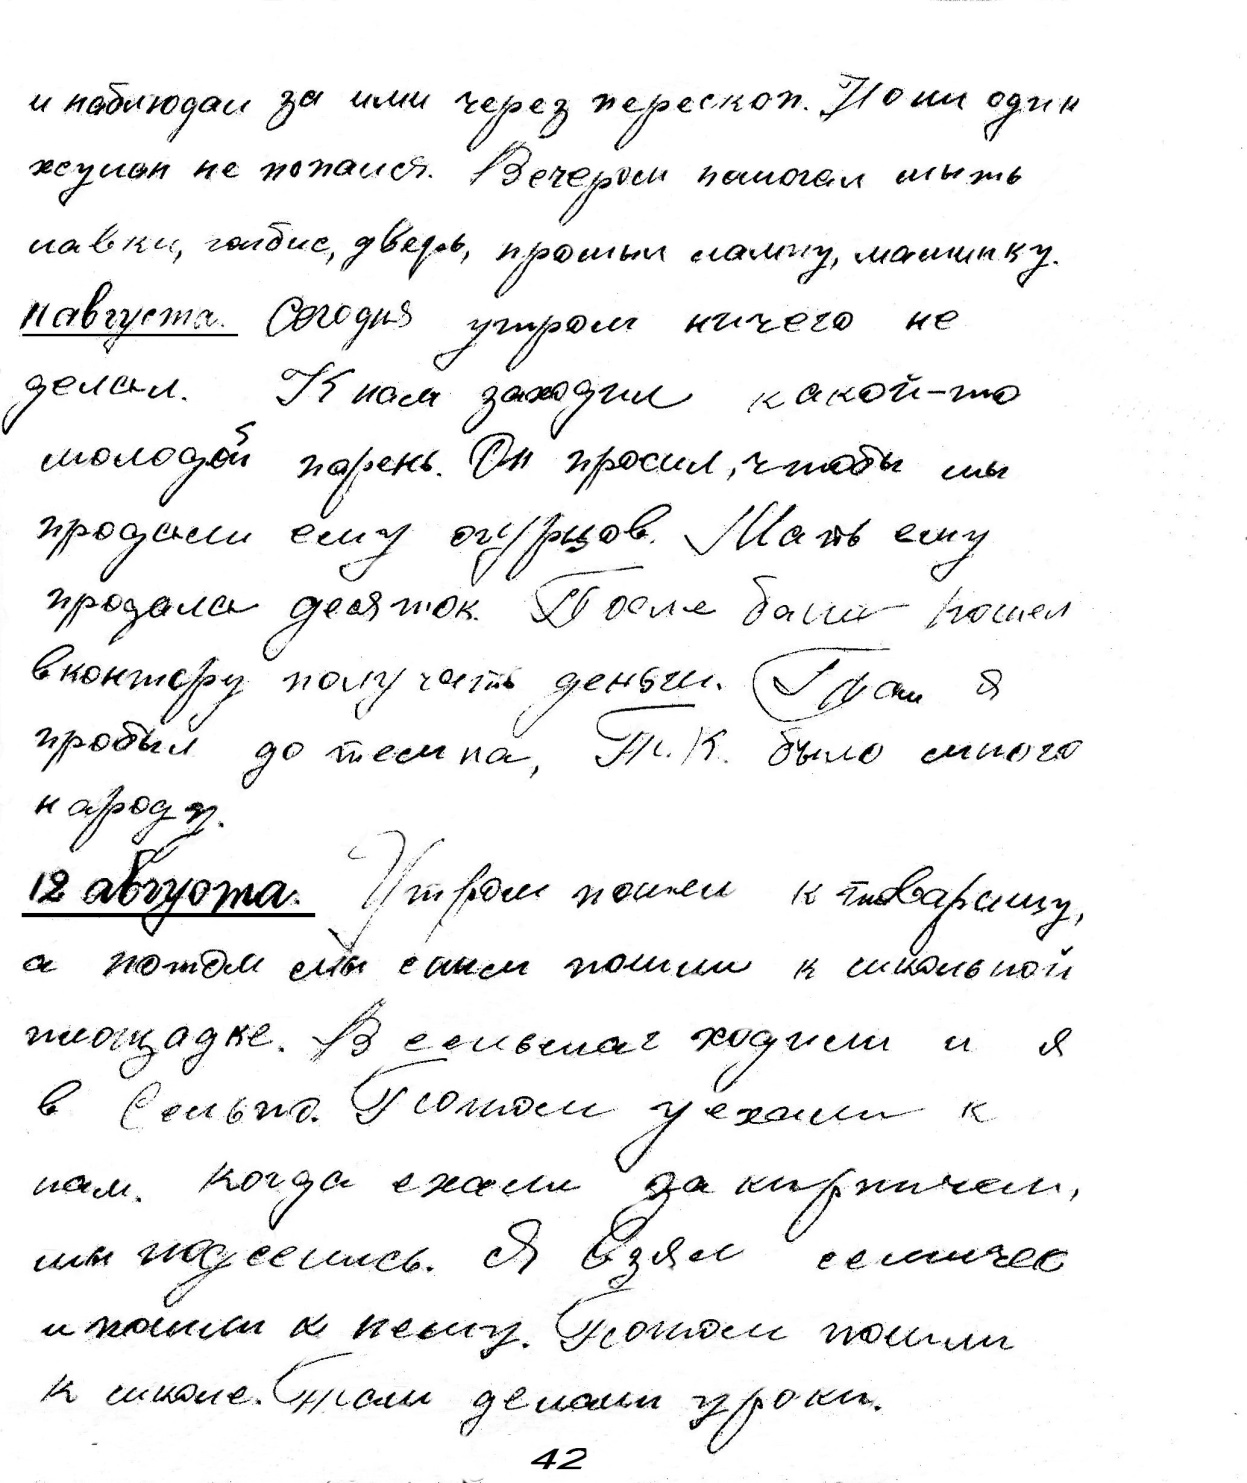 и наблюдал за ими через перескоп. Но ни один
жулан не попался. Вечером помогал мыть
лавки, голбис, дверь, промыл лампу, машинку.
11 августа. Сегодня утром ничего не
делал. К нам заходил какой-то
молодой парень. Он просил, чтобы мы
продали ему огурцов. Мать ему
продала десяток. После бани пошел
в контору получать деньги. Там я
пробыл до темна, т.к. было много
народу.
12 августа. Утром пошел к товарищу,
а потом мы с ним пошли к школьной
площадке. В сельмаг ходили и я
в Сельпо. Потом уехали к
нам. Когда ехали за кирпичем,
мы подселись. Я взял семичек
и пошли к нему. Потом пошли
к школе. Там делали уроки.
42